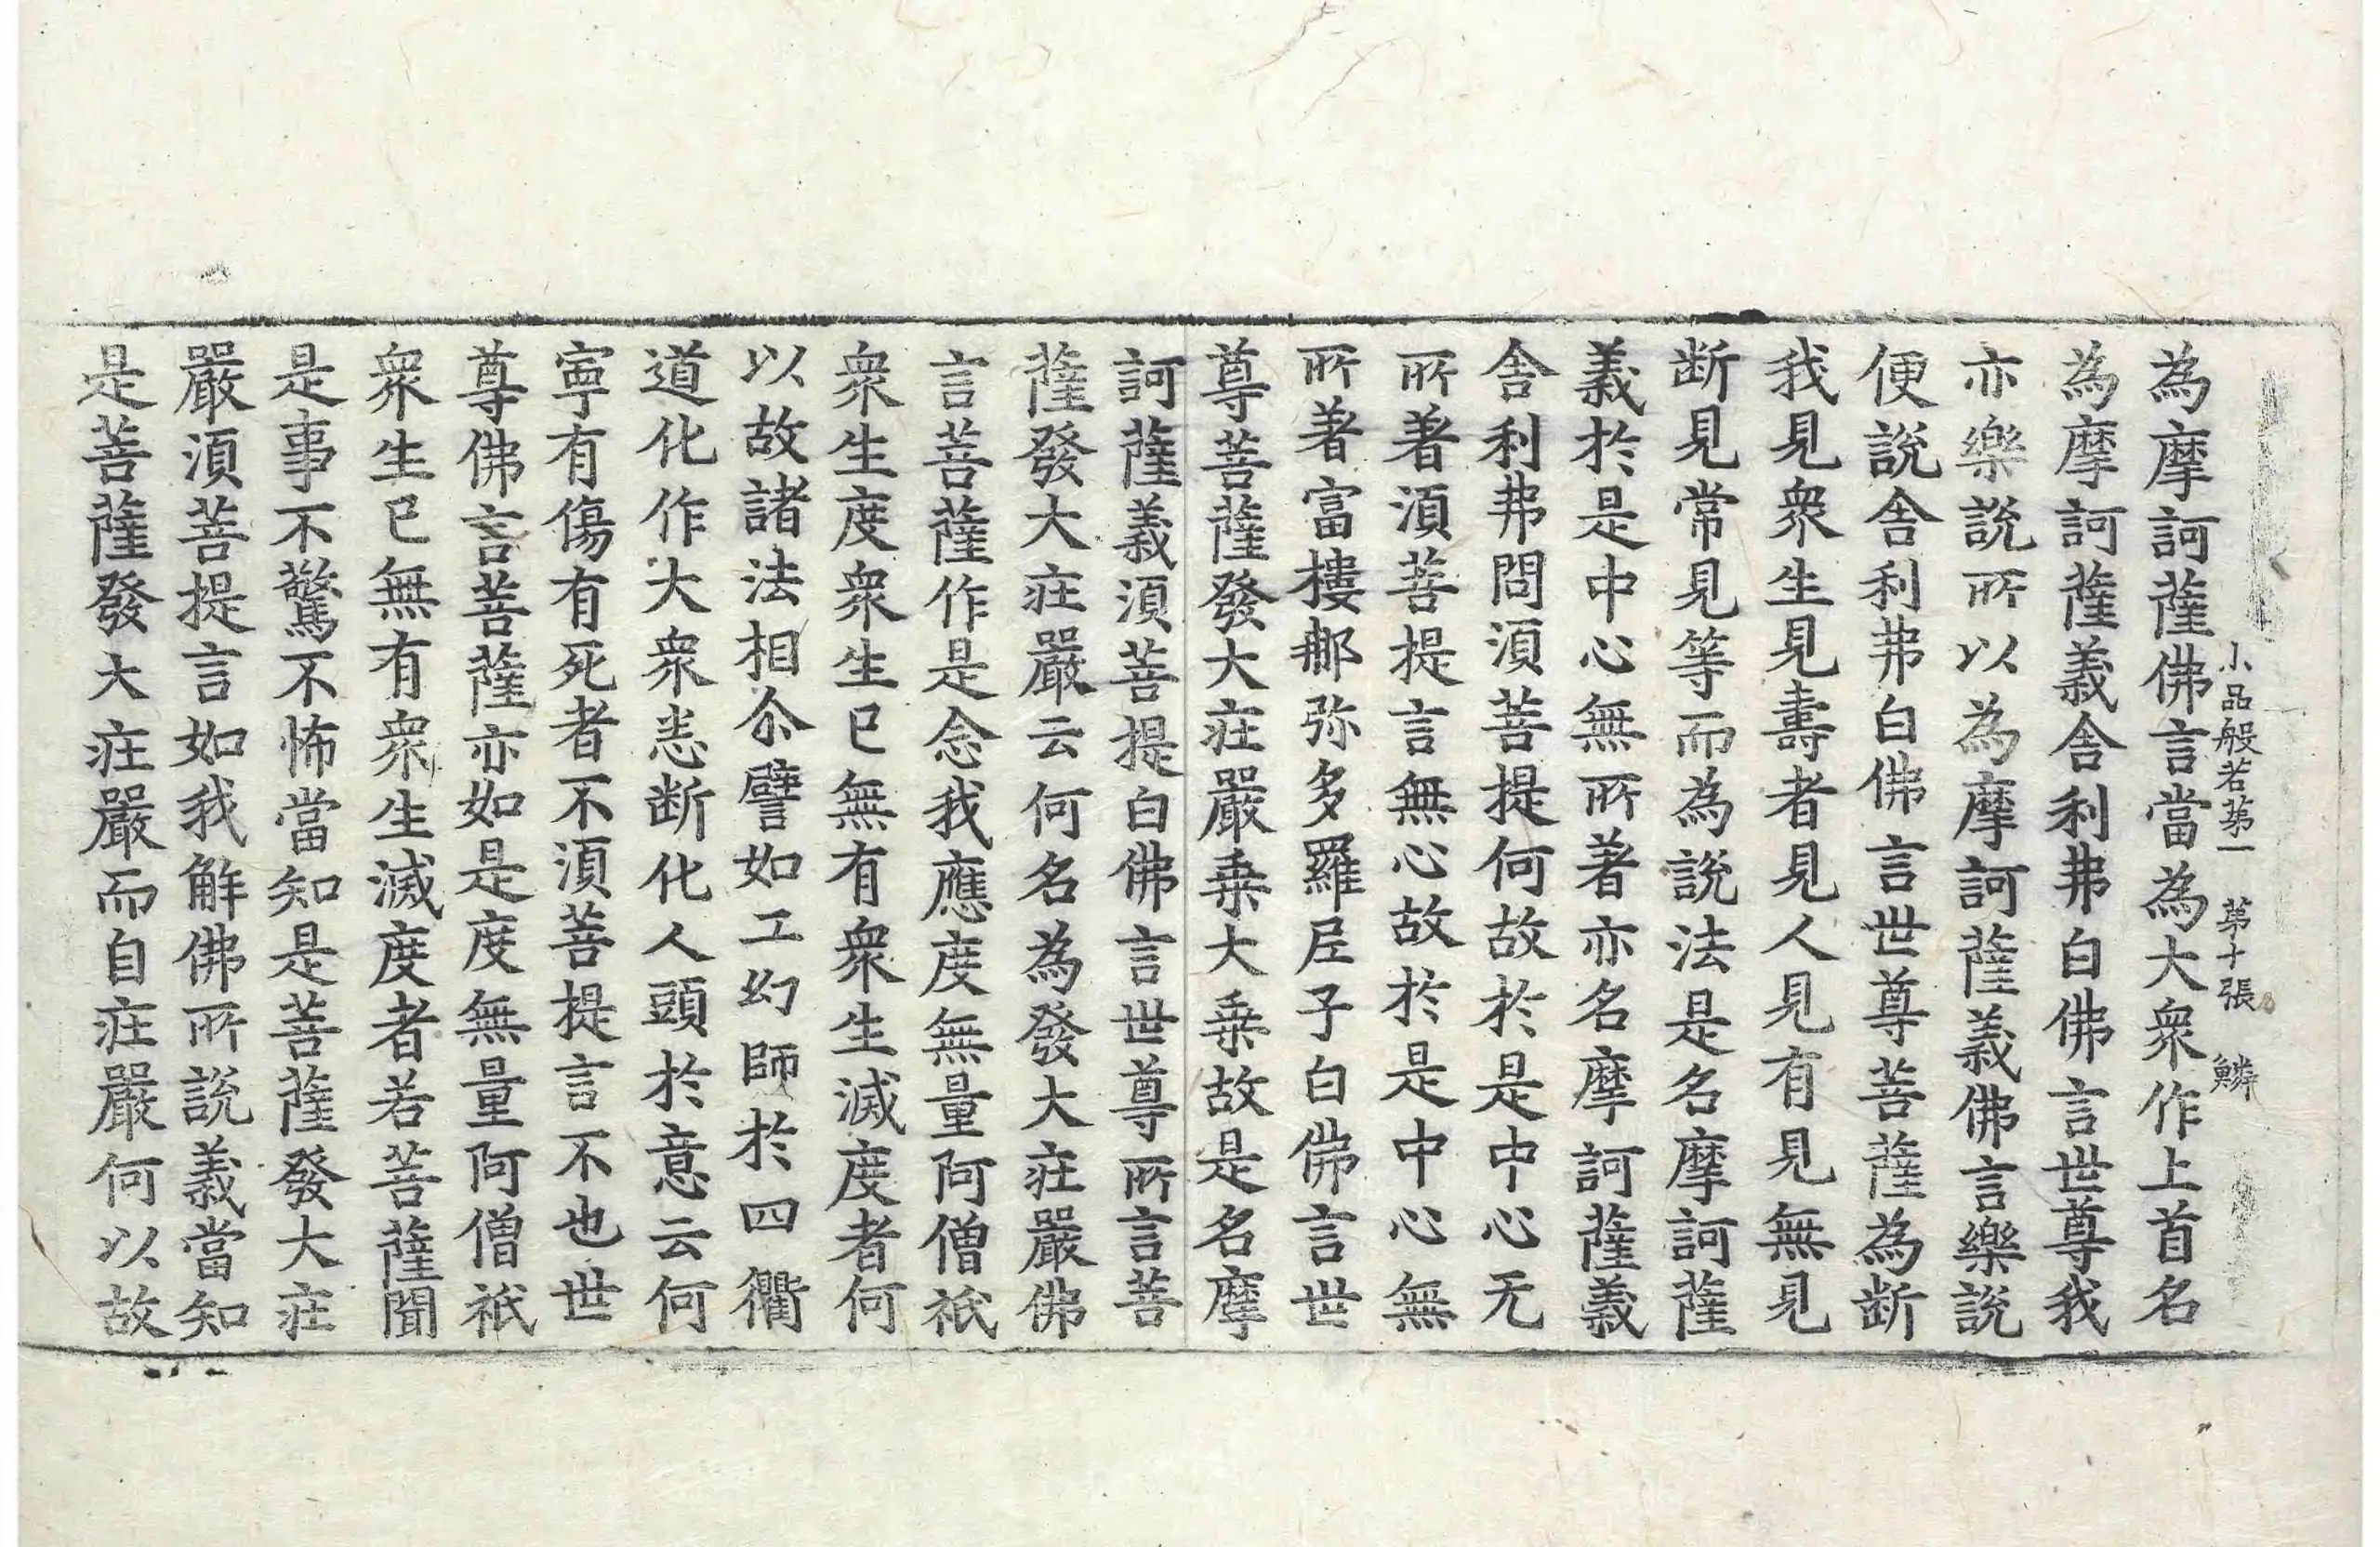 小品般若第一　第十張　鱗
為摩訶薩佛言當為大衆作上首名
為摩訶薩義舍利弗白佛言世尊我
亦樂說所以為摩訶薩義佛言樂說
便說舍利弗白佛言世尊菩薩為断
我見衆生見壽者見人見有見無見
断見常見等而為說法是名摩訶薩
義於是中心無所著亦名摩訶薩義
舍利弗問須菩提何故於是中心无
所著須菩提言無心故於是中心無
所著富樓那弥多羅尼子白佛言世
尊菩薩發大莊嚴乗大乗故是名摩
訶薩義須菩提白佛言世尊所言菩
薩發大莊嚴云何名為發大莊嚴佛
言菩薩作是念我應度無量阿僧祇
衆生度衆生已無有衆生滅度者何
以故諸法相尒譬如工幻師於四衢
道化作大衆悉断化人頭於意云何
寧有傷有死者不須菩提言不也世
尊佛言菩薩亦如是度無量阿僧祇
衆生已無有衆生滅度者若菩薩聞
是事不驚不怖當知是菩薩發大莊
嚴須菩提言如我解佛所說義當知
是菩薩發大莊嚴而自莊嚴何以故